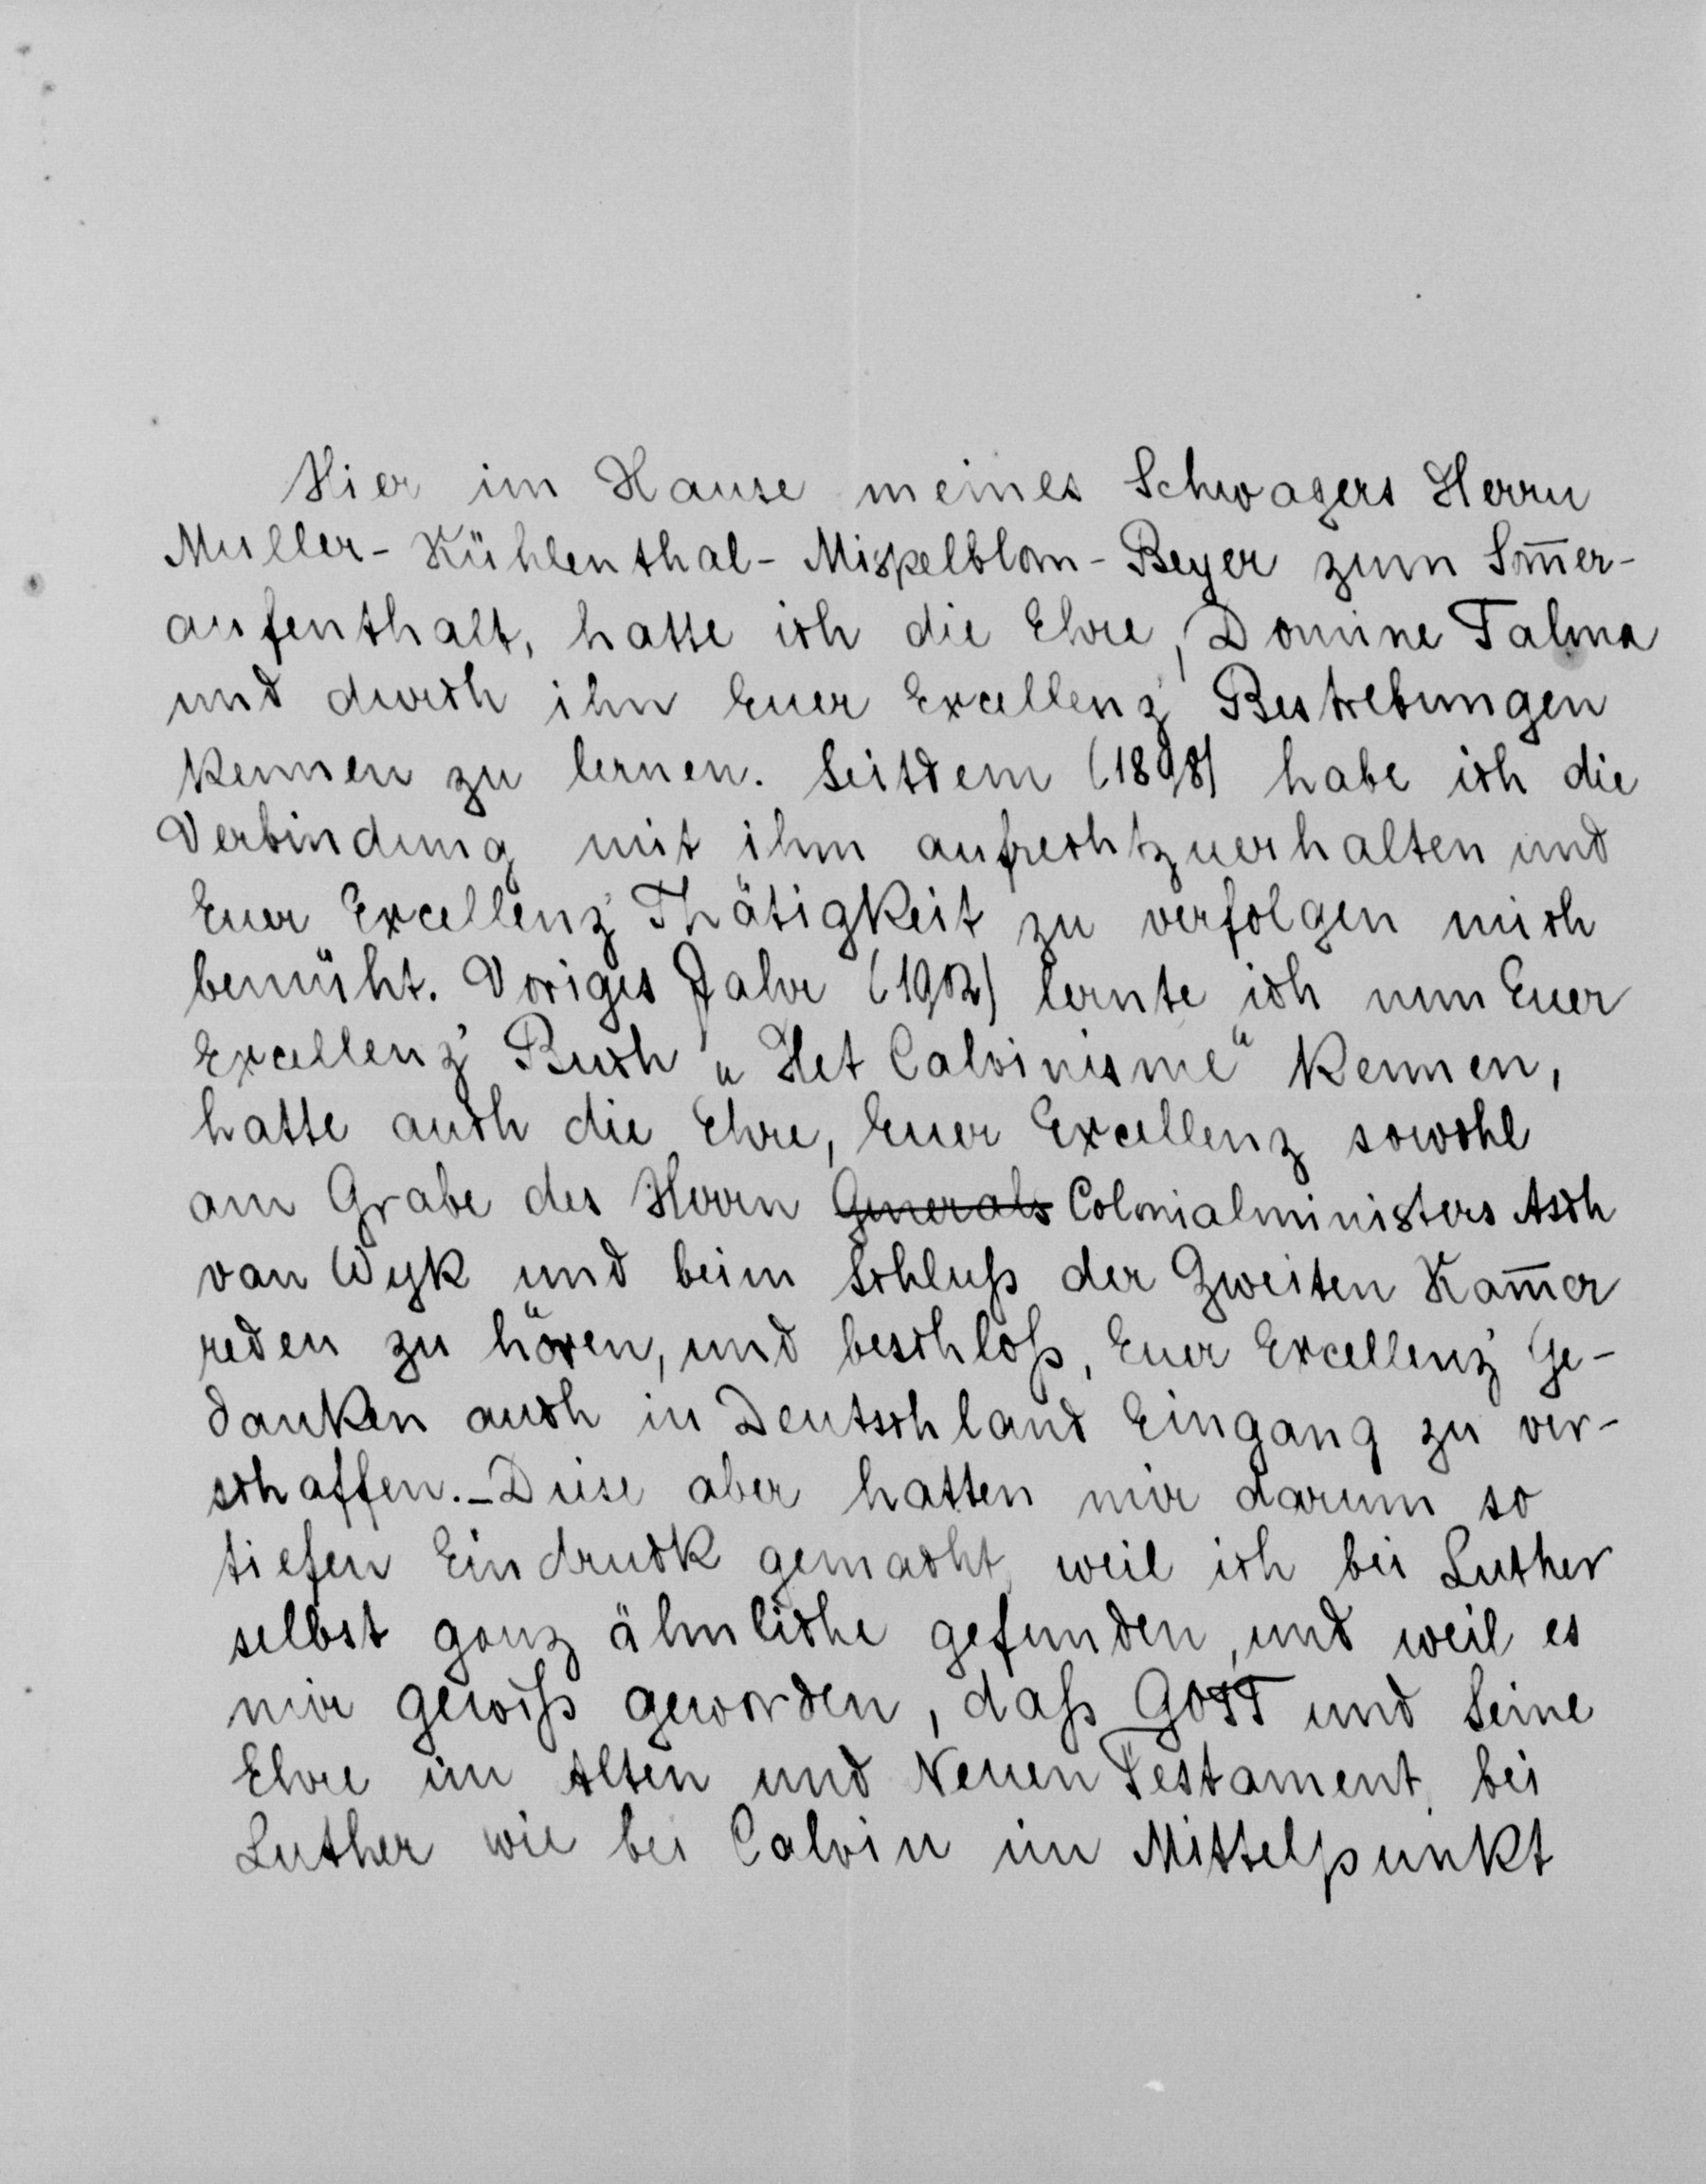 Hier im Hause meines Schwagers Herrn
Muller-Kühlenthal-Mispelblom-Beyer zum Som̅er-
aufenthalt, hatte ich die Ehre, Domine Talma
und durch ihn Euer Excellenz' Bestrebungen
kennen zu lernen. Seitdem (1898) habe ich die
Verbindung mit ihm aufrechtzuerhalten und
Euer Excellenz' Thätigkeit zu verfolgen mich
bemüht. Voriges Jahr (1902) lernte ich nun Euer
Excellenz' Buch „Het Calvinisme“ kennen,
hatte auch die Ehre, Euer Excellenz sowohl
am Grabe des Herrn Generals Colonialministers Asch
van Wyk und beim Schluß der Zweiten Kam̅er
reden zu hören, und beschloß, Euer Excellenz' Ge-
danken auch in Deutschland Eingang zu ver-
schaffen. – Diese aber hatten mir darum so
tiefen Eindruck gemacht, weil ich bei Luther
selbst ganz ähnliche gefunden, und weil es
mir gewiß geworden, daß GOTT und Seine
Ehre im Alten und Neuen Testament, bei
Luther wie bei Calvin im Mittelpunkt